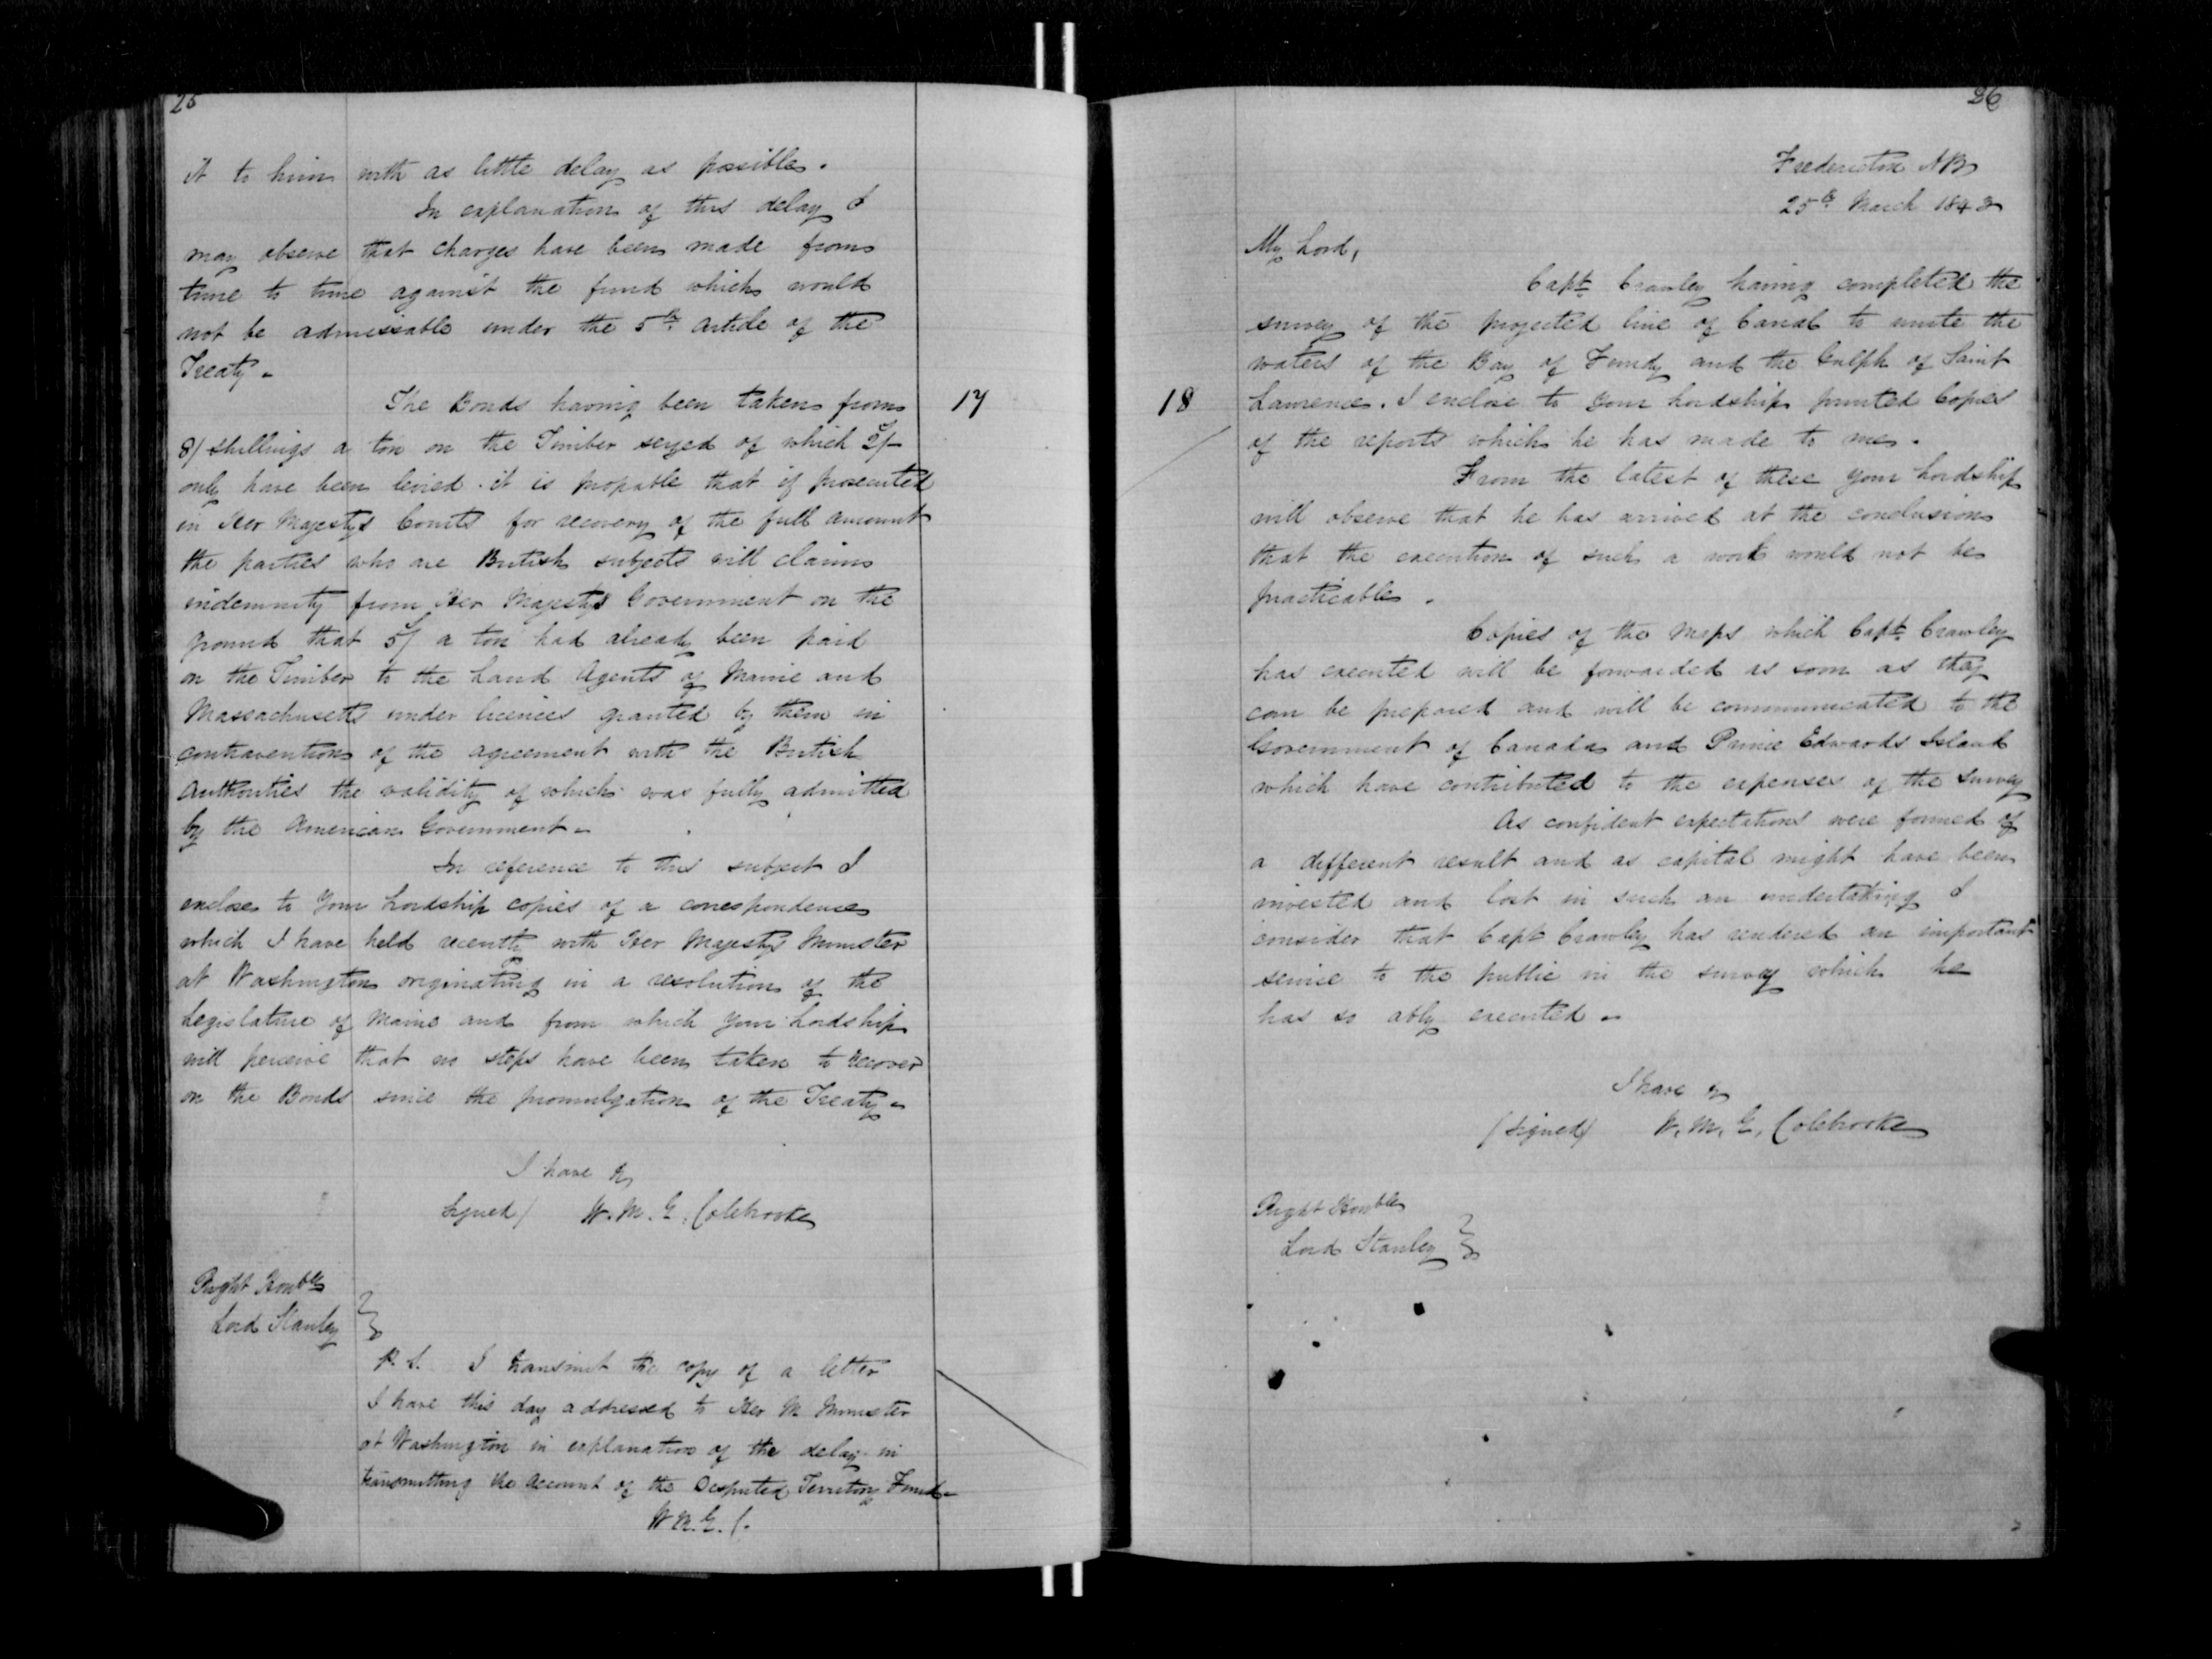 25
it to him with as little delay as possible.
In explanation of this delay I
may observe that charges have been made from
time to time against the fund which would
not be admissable under the 5th article of the
Treaty.
The Bonds having been taken from
17
8/ shillings a ton on the Timber seized of which 2/-
only have been levied. it is propable that if prosecuted
in Her Majestys Courts for recovery of the full amount
the parties who are British subjects will claim
indemnity from Her Majestys Government on the
ground that 5/ a ton had already been paid
on the Timber to the Land Agents of Maine and
Massachusetts under licences granted by them in
contravention of the agreement with the British
Authorities the validity of which was fully admitted
by the American Government.
In reference to this subject I
enclose to Your Lordship copies of a correspondence
which I have held recently with Her Majestys Minister
at Washington originating in a resolution of the
Legislature of Maine and from which Your Lordship
will perceive that no steps have been taken to recover
on the Bonds since the promulgation of the Treaty.
I have &c
Signed) W. M. G. Colebrooke
Right Honble
Lord Stanley
P. S. I transmit the copy of a letter
I have this day addressed to Her M Minister
at Washington in explanation of the delay in
transmitting the Account of the Disputed Territory Fund.
W M. G. C.
26
Fredericton NB
25th March 1843
My Lord,
Capt. Crawley having completed the
survey of the projected line of Canal to unite the
waters of the Bay of Fundy and the Gulph of Saint
18
Lawrence. I enclose to Your Lordship printed Copies
of the reports which he has made to me.
From the latest of these Your Lordship
will observe that he has arrived at the conclusion
that the execution of such a work would not be
practicable.
Copies of the Maps which Capt. Crawley
has executed will be forwarded as soon as they
can be prepared and will be communicated to the
Government of Canada and Prince Edwards Island
which have contributed to the expenses of the survey
As confident expectations were formed of
a different result and as capital might have been
invested and lost in such an undertaking I
consider that Capt Crawley has rendered an important
service to the public in the survey which he
has so ably executed.
I have &c
(Signed) W. M. G. Colebrooke
Right Honble
Lord Stanley